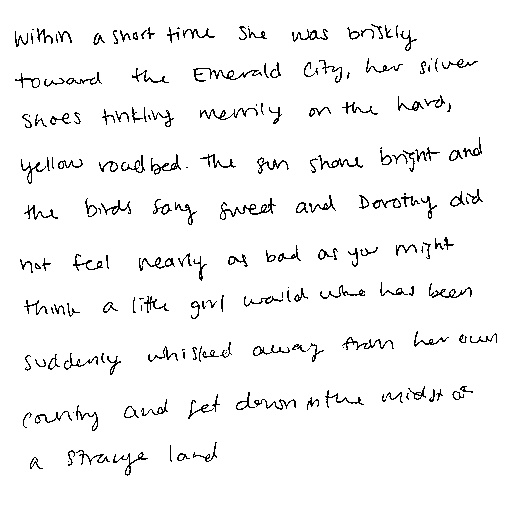 Within a short time she was briskly
toward the Emerald City, her silver
Shoes tinkling merrily on the hard,
yellow roadbed. The sun shone bright and
the birds sang sweet and Dorothy did
not feel nearly as bad as you might
think a little girl would who has been
suddenly whisked away from her own
country and set down in the midst of
a strange land